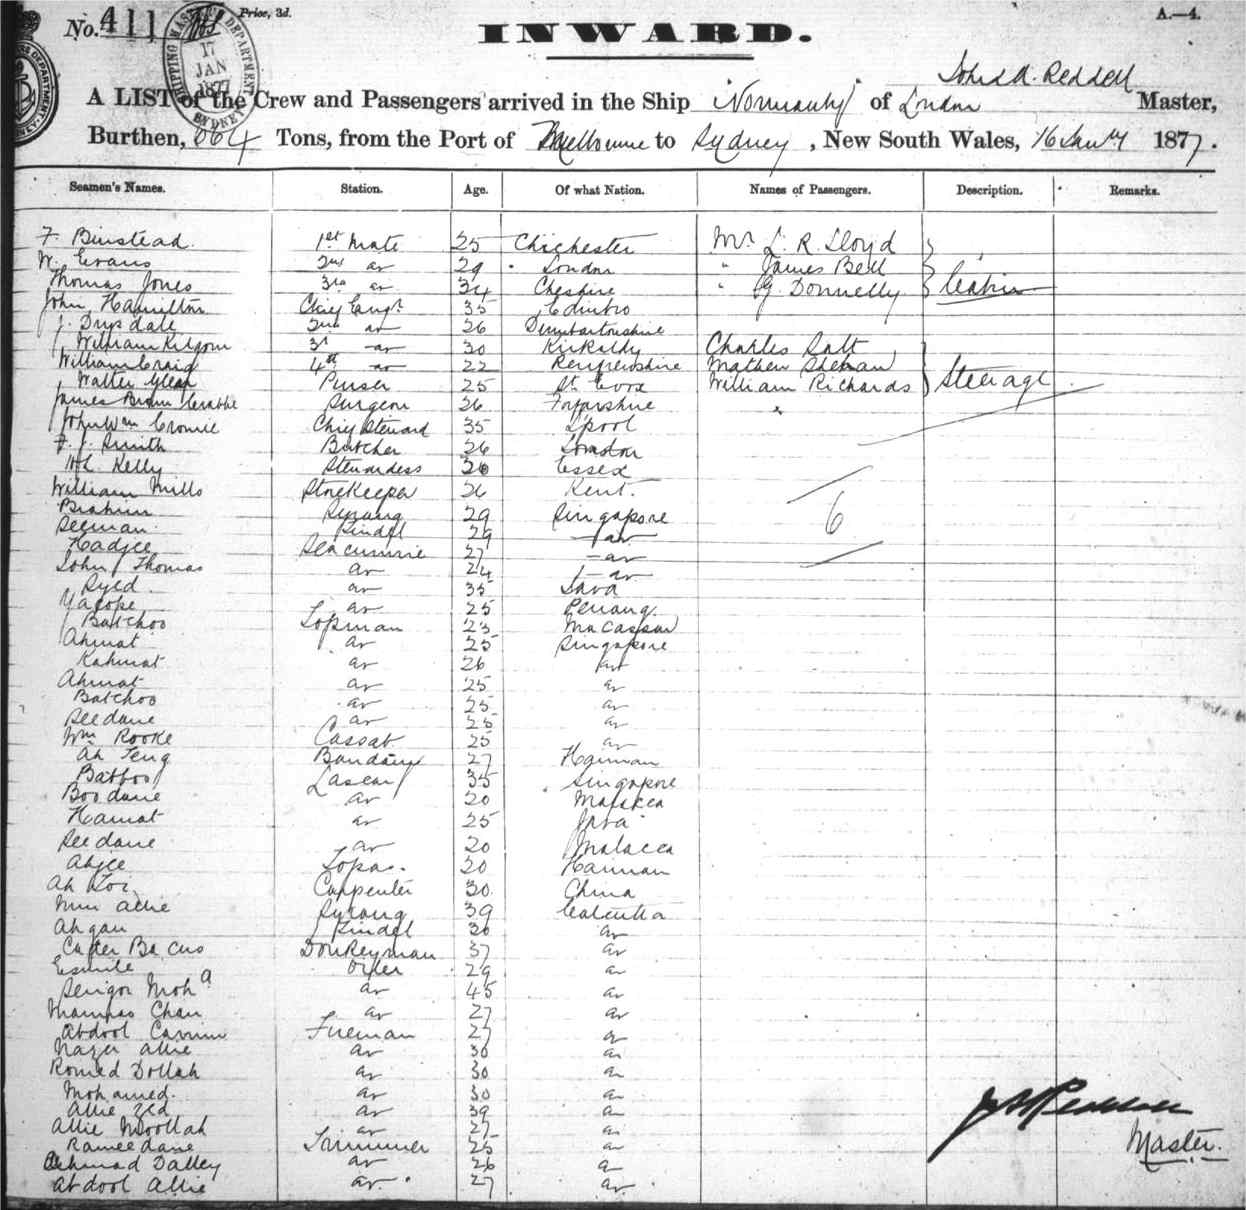 No. 411 Price, 3d. A.—4.
SHIPPING MASTER'S DEPARTMENT 17 JAN 1877 SYDNEY
INWARD.
John A. Reddell
A LIST of the Crew and Passengers arrived in the Ship "Normanby" of London Master,
Burthen, 664 Tons, from the Port of Melbourne to Sydney, New South Wales, 16 Jany 1877.
Seamen's Names. Station. Age. Of what Nation. Names of Passengers. Description. Remarks.
F. Binstead. 1st Mate 25 Chichester Mr. L. R. Lloyd
W. Evans 2nd do 29 London " James Bell
Thomas Jones 3rd do 34 Cheshire " G. Donnelly Cabin
John Hamilton Chief Engr. 35 Edinbro
J. Drysdale 2nd do 26 Dumbartonshire
William Kilgour 3d do 30 Kirkaldy Charles Salt
William Craig 4th do 22 Renfrewshire Mathew
Walter Purser 25 St. William Richards Steerage
James Brown Crabbe Surgeon 26 Forfarshire
John Wm Cromie Chief Steward 35 L'pool
F. J. Smith Butcher 26 London
Kelly Stewardess Essex
William Mills Storekeeper 26 Kent.
Brahim Syrang 29 Singapore 6
Seeman Tindal 29 do
Hadjee Seacunnie 27 do
John Thomas do 24 do
Syed do 35 Java
Yacope do 25 Penang.
Batchoo Topman 23 Macassar
Ahmat do 25 Singapore
Kahmat do 26 do
Ahmat do 25 do
Batchoo do 25 do
Seedane do 25 do
Wm Rooke Cassab 25 do
Ah Teng 27 Hainan
Lascar 35 Singapore
Boodane do 20 Malacca
Hamat do 25 Java
Seedane do 20 Malacca
Ahjee Topas. 20 Hainan
Ah Carpenter 30. China
Allie Syrang 39 Calcutta
Tindal do
Donkeyman 37 do
Esmile Oiler 29 do
Moha do 45 do
Chan do 27 do
Abdool Carrim Fireman 27 do
Nazer Allie do 30 do
Romed Dollah do 30 do
Mohamed. do 30 do
Allie Zed do 39 do
Allie Moollah do 27 do
Rameedane Trimmer 25 do
Ahmad Dalley do 26 do
Abdool Allie do 27 do
Master.